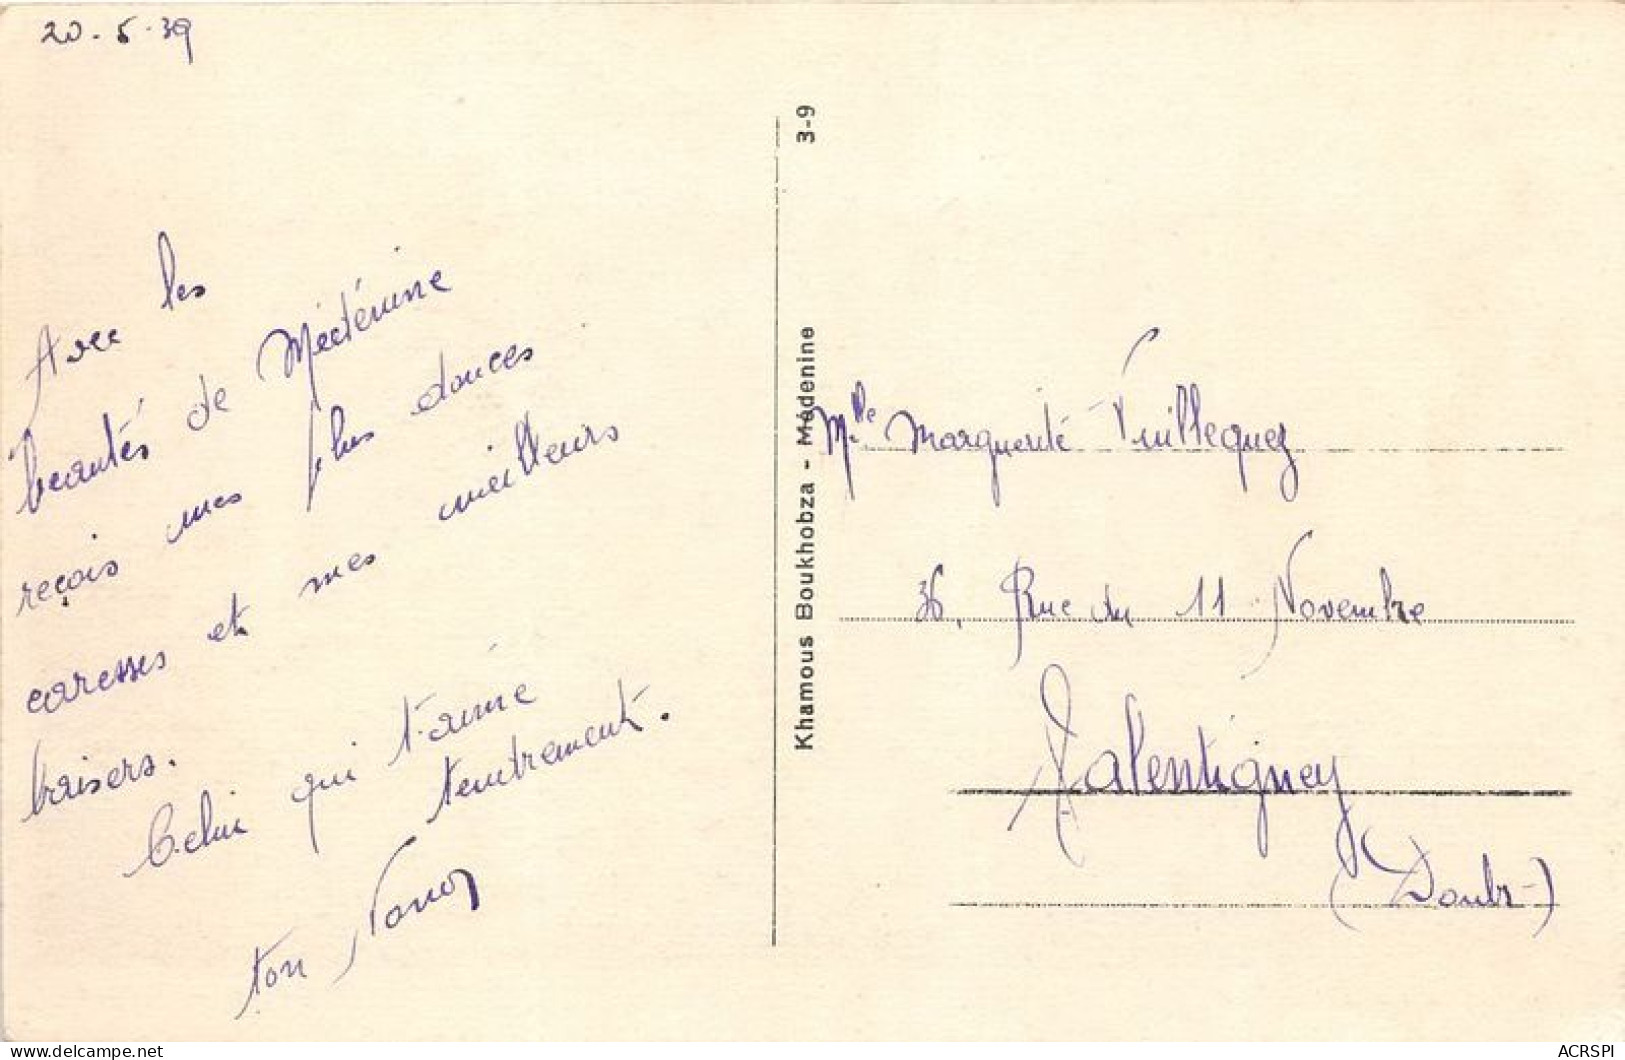 20-5-39
Avec les
beautés de Médenine
reçois mes plus douces
caresses et mes meilleurs
baisers.
Celui qui t'aime
tendrement.
ton
Khamous Boukhobza - Médenine 3-9
Mlle Marguerite Vuillequez
36, Rue du 11 Novembre
Valentigney
(Doubs)
delcampe.net
ACRSPI